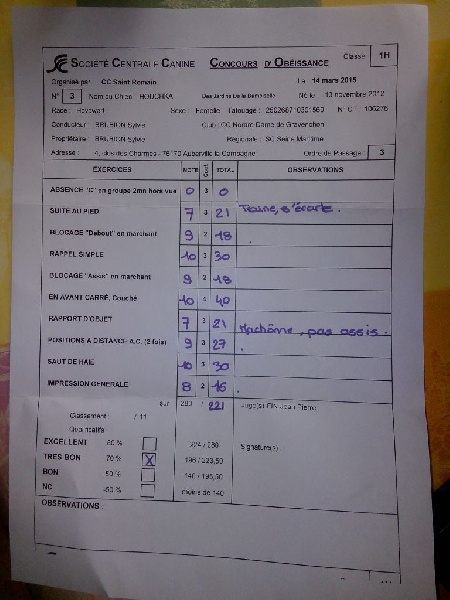 SOCIÉTÉ CENTRALE CANINE CONCOURS D'OBÉISSANCE Classe 1H
Organisé par : CC Saint Romain Le : 14 mars 2015
N° 3 Nom du Chien : HOUCHKA Des Jardins De La Né le : 13 novembre 2012
Race : Hovawart Sexe : Femelle Tatouage :
Conducteur : Sylvie Club : CC Notre Dame de Gravenchon
Propriétaire : Sylvie Régionale : SC Seine Maritime
Adresse : 4, des Charmes - Auberville la Campagne Ordre de Passage : 3
EXERCICES NOTE Coef. TOTAL OBSERVATIONS
ABSENCE "C" en groupe 2mn hors vue 0 3 0
SUITE AU PIED 7 3 21 Traine, s'écarte.
BLOCAGE "Debout" en marchant 9 2 18
RAPPEL SIMPLE 10 3 30
BLOCAGE "Assis" en marchant 9 2 18
EN AVANT CARRÉ, Couché 10 4 40
RAPPORT D'OBJET 7 3 21 Machonne, pas assis.
POSITIONS A DISTANCE A.C. (2 fois) 9 3 27
SAUT DE HAIE 10 3 30
IMPRESSION GENERALE 8 2 16
sur 280 / 221 Juge(s) Jean Pierre
Classement : / 11
Qualificatifs
EXCELLENT 80 % 224 / 280 Signature(s)
TRES BON 70 % X 196 / 223,50
BON 50 % 140 / 195,50
NC -50 % moins de 140
OBSERVATIONS :